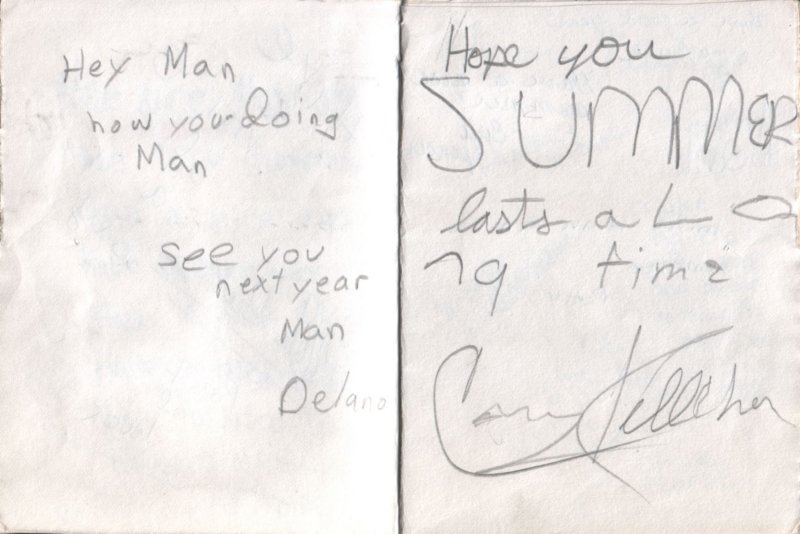 Hey Man
how you doing
Man
see you
next year
Man
Delano
Hope you
SUMMER
lasts a LO
ng time
Kelleher